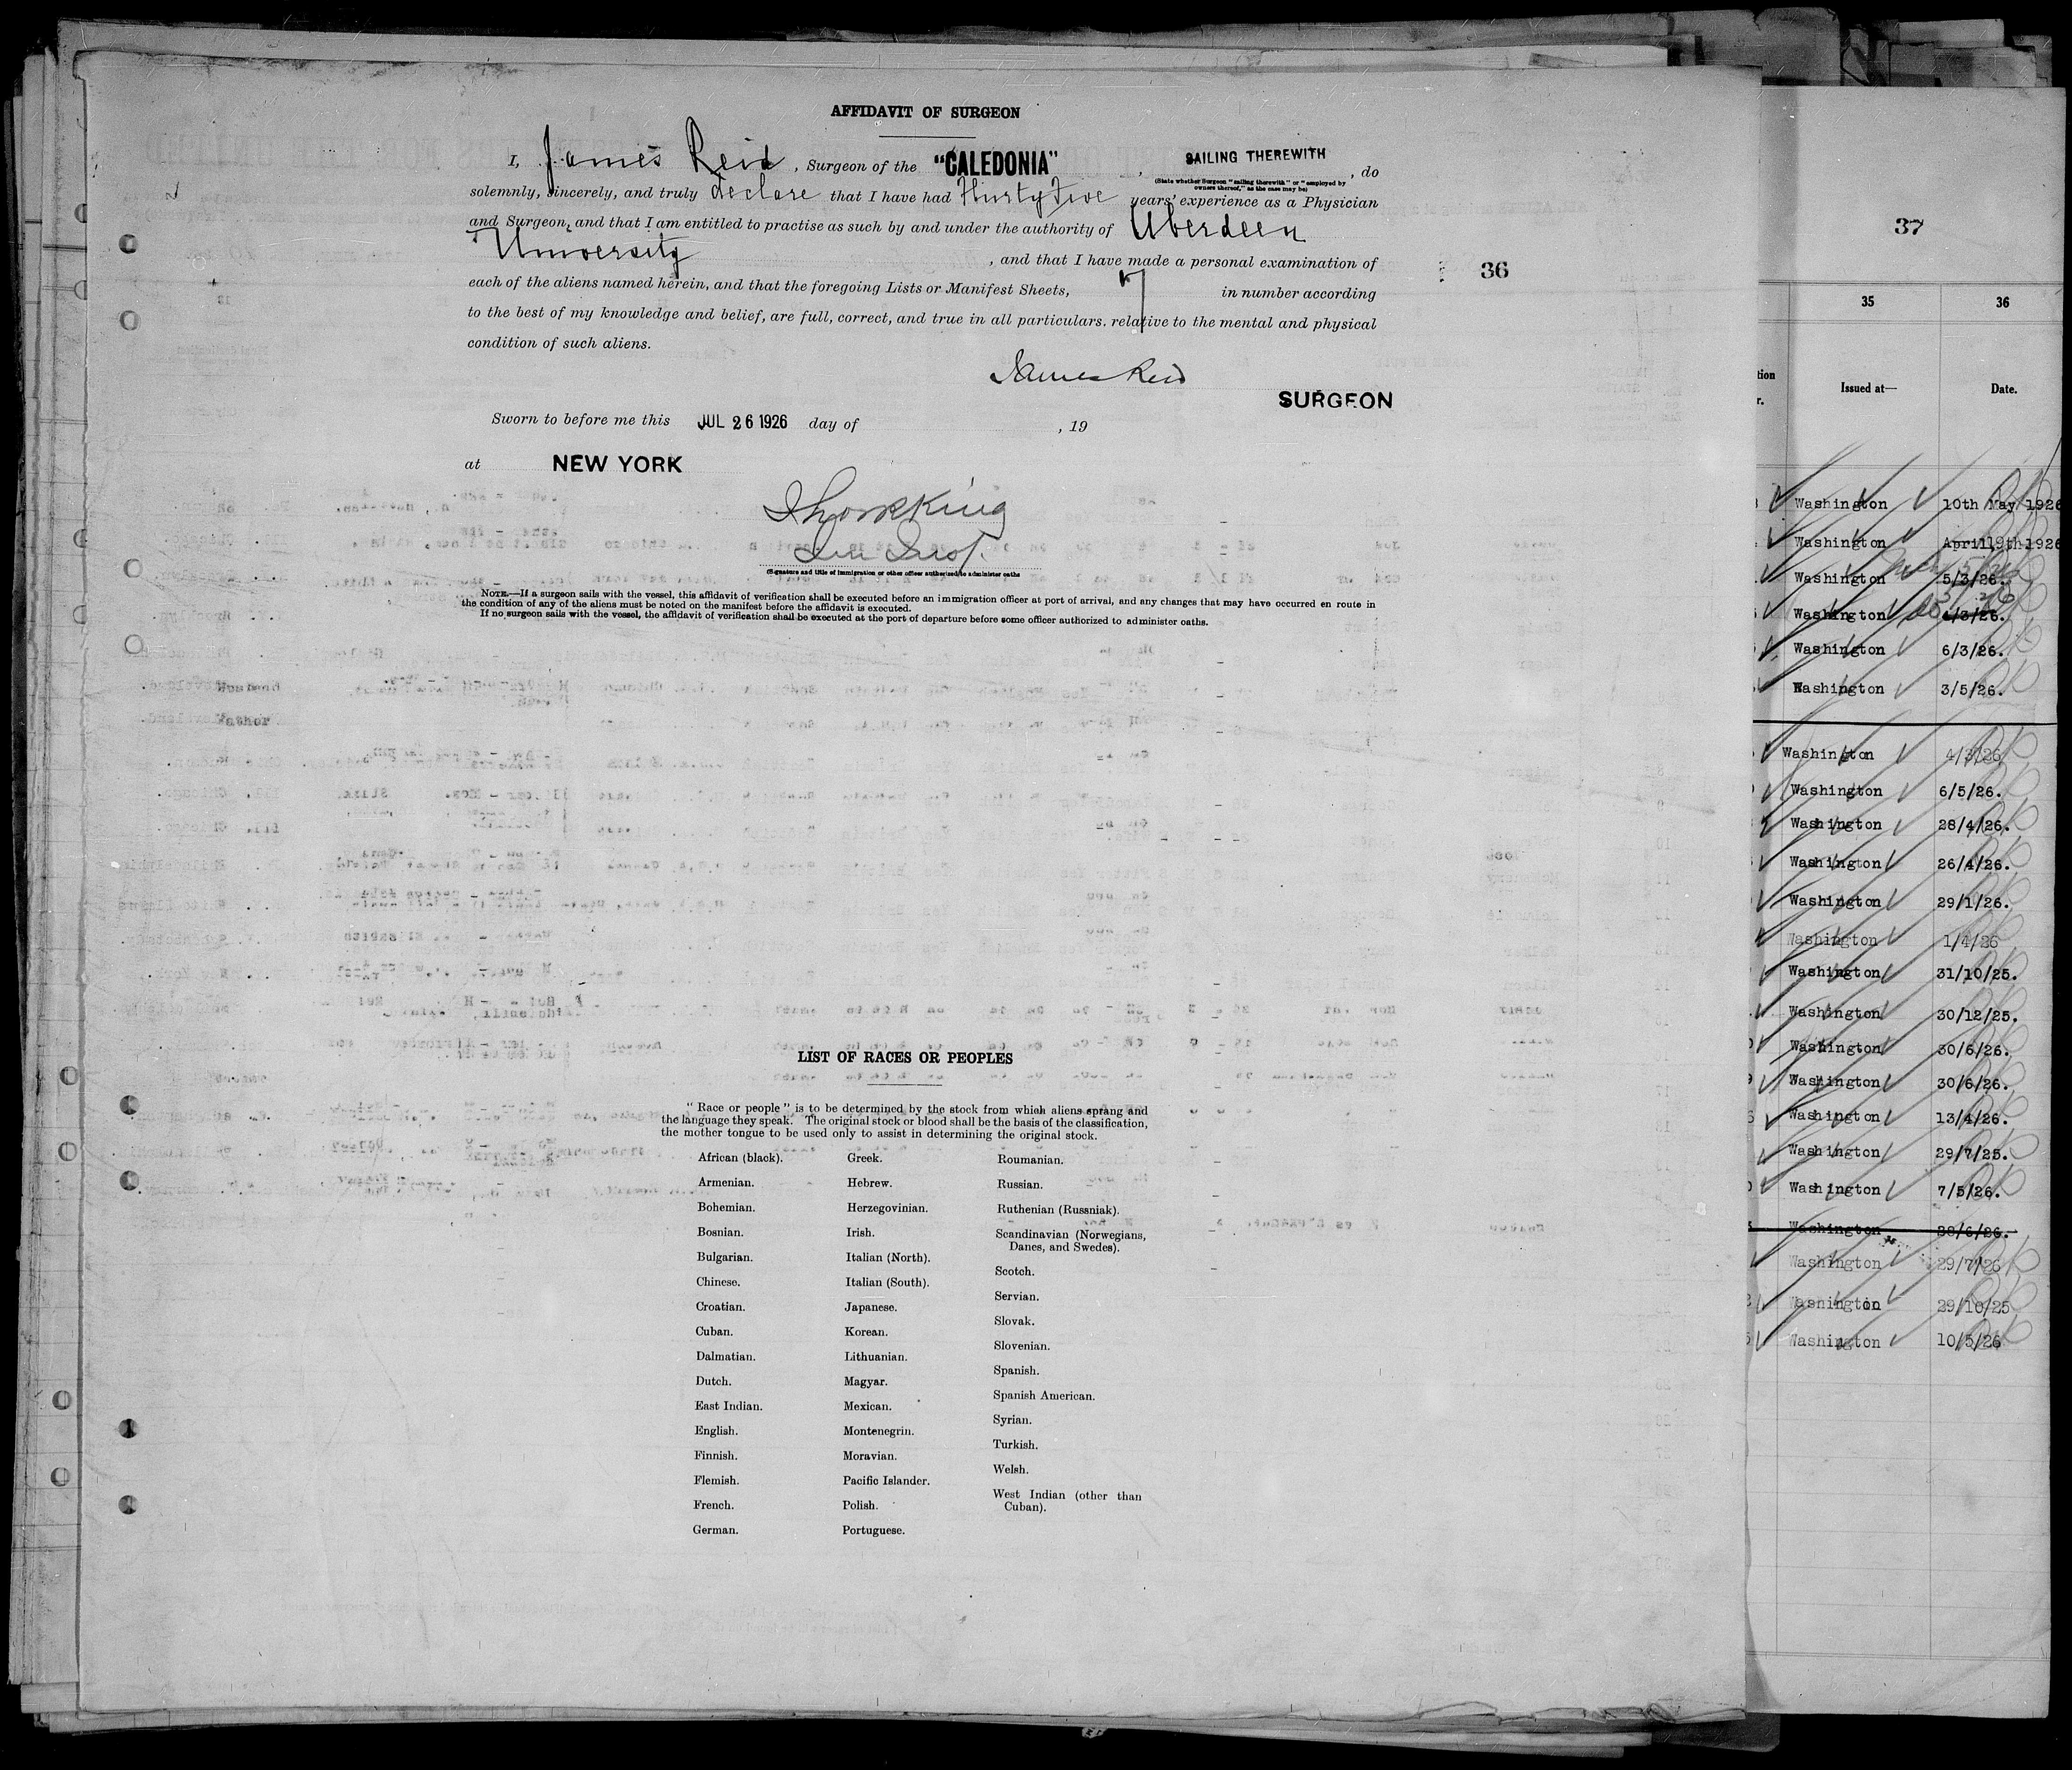 AFFIDAVIT OF SURGEON
I, James Reid, Surgeon of the "CALEDONIA", SAILING THEREWITH, do
(State whether Surgeon "sailing therewith" or "employed by
owners thereof," as the case may be)
solemnly, sincerely, and truly declare that I have had Thirty Five years' experience as a Physician
and Surgeon, and that I am entitled to practise as such by and under the authority of Aberdeen
University, and that I have made a personal examination of
each of the aliens named herein, and that the foregoing Lists or Manifest Sheets, 7 in number according
to the best of my knowledge and belief, are full, correct, and true in all particulars. relative to the mental and physical
condition of such aliens.
James Reid
SURGEON
Sworn to before me this JUL 26 1926 day of , 19
at NEW YORK
(Signature and title of immigration or other officer authorized to administer oaths
NOTE.—If a surgeon sails with the vessel, this affidavit of verification shall be executed before an immigration officer at port of arrival, and any changes that may have occurred en route in
the condition of any of the aliens must be noted on the manifest before the affidavit is executed.
If no surgeon sails with the vessel, the affidavit of verification shall be executed at the port of departure before some officer authorized to administer oaths.
36
LIST OF RACES OR PEOPLES
"Race or people" is to be determined by the stock from which aliens sprang and
the language they speak. The original stock or blood shall be the basis of the classification,
the mother tongue to be used only to assist in determining the original stock.
African (black).
Armenian.
Bohemian.
Bosnian.
Bulgarian.
Chinese.
Croatian.
Cuban.
Dalmatian.
Dutch.
East Indian.
English.
Finnish.
Flemish.
French.
German.
Greek.
Hebrew.
Herzegovinian.
Irish.
Italian (North).
Italian (South).
Japanese.
Korean.
Lithuanian.
Magyar.
Mexican.
Montenegrin.
Moravian.
Pacific Islander.
Polish.
Portuguese.
Roumanian.
Russian.
Ruthenian (Russniak).
Scandinavian (Norwegians,
Danes, and Swedes).
Scotch.
Servian.
Slovak.
Slovenian.
Spanish.
Spanish American.
Syrian.
Turkish.
Welsh.
West Indian (other than
Cuban).
37
35 36
Issued at— Date.
Washington 10th May 1926
Washington April 19th 1926
Washington 5/3/26.
Washington 4/3/26.
Washington 6/3/26.
Washington 3/5/26.
Washington 4/3/26
Washington 6/5/26.
Washington 28/4/26.
Washington 26/4/26.
Washington 29/1/26.
Washington 1/4/26
Washington 31/10/25.
Washington 30/12/25.
Washington 30/6/26.
Washington 30/6/26.
Washington 13/4/26.
Washington 29/7/25.
Washington 7/5/26.
Washington 28/6/26.
Washington 29/7/26
Washington 29/10/25
Washington 10/5/26